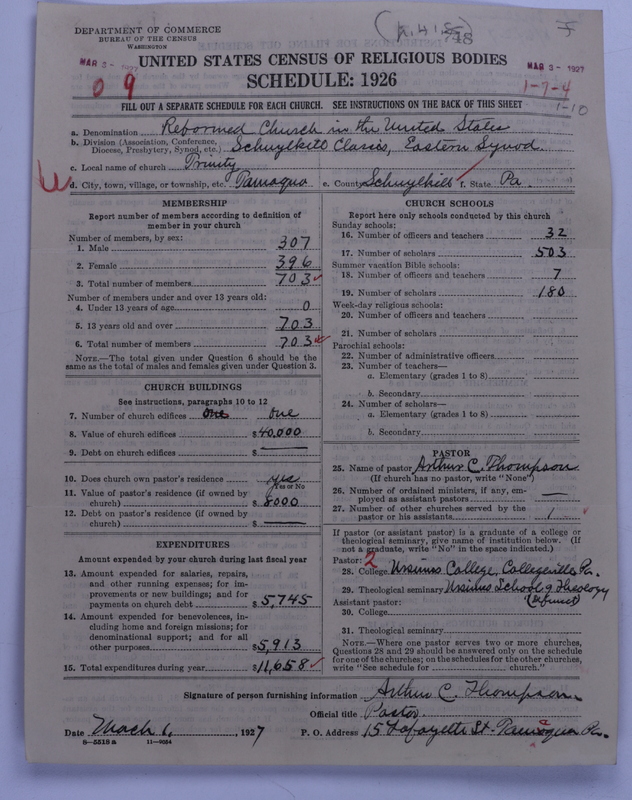 DEPARTMENT OF COMMERCE
BUREAU OF THE CENSUS
WASHINGTON
MAR 3 - 1927
UNITED STATES CENSUS OF RELIGIOUS BODIES
MAR 3 - 1927
SCHEDULE: 1926
0 9
1-7-4
FILL OUT A SEPARATE SCHEDULE FOR EACH CHURCH. SEE INSTRUCTIONS ON THE BACK OF THIS SHEET
1-10
a. Denomination Reformed Church in the United States
b. Division (Association, Conference, Diocese, Presbytery, Synod, etc.) Schuylkill Classis, Eastern Synod.
c. Local name of church Trinity
d. City, town, village, or township, etc. Tamaqua e. County Schuylkill f. State Pa.
MEMBERSHIP
Report number of members according to definition of
member in your church
Number of members, by sex:
1. Male 307
2. Female 396
3. Total number of members 703
Number of members under and over 13 years old:
4. Under 13 years of age 0
5. 13 years old and over 703
6. Total number of members 703
NOTE.—The total given under Question 6 should be the
same as the total of males and females given under Question 3.
CHURCH BUILDINGS
See instructions, paragraphs 10 to 12
7. Number of church edifices one one
8. Value of church edifices $40,000
9. Debt on church edifices $ —
10. Does church own pastor's residence yes
Yes or No
11. Value of pastor's residence (if owned by
church) $8000
12. Debt on pastor's residence (if owned by
church) $ —
EXPENDITURES
Amount expended by your church during last fiscal year
13. Amount expended for salaries, repairs,
and other running expenses; for im-
provements or new buildings; and for
payments on church debt $5,745
14. Amount expended for benevolences, in-
cluding home and foreign missions; for
denominational support; and for all
other purposes $5,913
15. Total expenditures during year $11,658
CHURCH SCHOOLS
Report here only schools conducted by this church
Sunday schools:
16. Number of officers and teachers 32
17. Number of scholars 503
Summer vacation Bible schools:
18. Number of officers and teachers 7
19. Number of scholars 180
Week-day religious schools:
20. Number of officers and teachers
21. Number of scholars
Parochial schools:
22. Number of administrative officers
23. Number of teachers—
a. Elementary (grades 1 to 8)
b. Secondary
24. Number of scholars—
a. Elementary (grades 1 to 8)
b. Secondary
PASTOR
25. Name of pastor Arthur C. Thompson
(If church has no pastor, write "None")
26. Number of ordained ministers, if any, em-
ployed as assistant pastors —
27. Number of other churches served by the
pastor or his assistants 1
If pastor (or assistant pastor) is a graduate of a college or
theological seminary, give name of institution below. (If
not a graduate, write "No" in the space indicated.)
Pastor: 2
28. College Ursinus College, Collegeville Pa.
29. Theological seminary Ursinus School of Theology
Assistant pastor: (defunct)
30. College
31. Theological seminary
NOTE.—Where one pastor serves two or more churches,
Questions 28 and 29 should be answered only on the schedule
for one of the churches; on the schedules for the other churches,
write "See schedule for church."
Signature of person furnishing information Arthur C. Thompson.
Official title Pastor.
Date March 1, 1927 P. O. Address 15 Lafayette St. Tamaqua Pa.
8—5518 a 11—9054